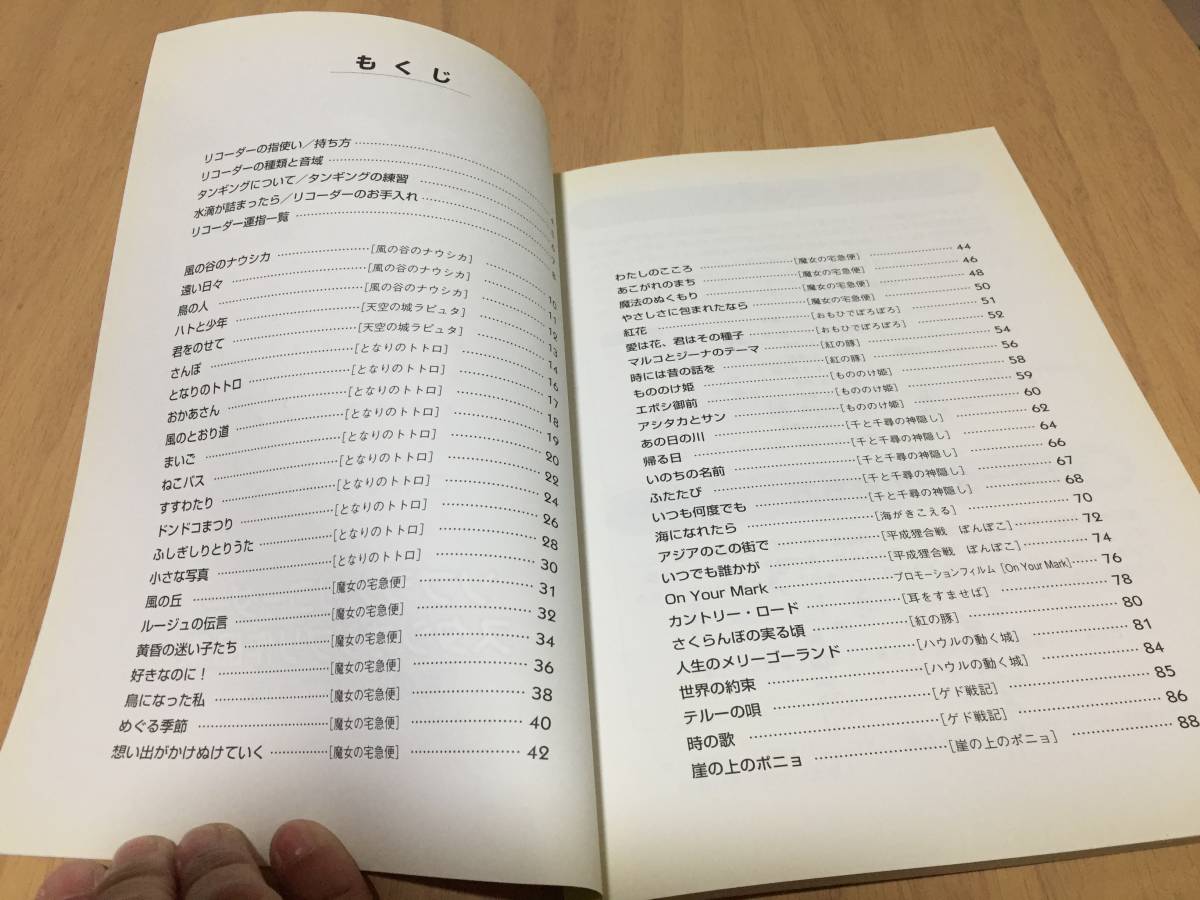 もくじ
リコーダーの指使い／持ち方
リコーダーの種類と音域
タンギングについて／タンギングの練習
水滴が詰まったら／リコーダーのお手入れ
リコーダー運指一覧 8
風の谷のナウシカ [風の谷のナウシカ] 10
遠い日々 [風の谷のナウシカ] 11
鳥の人 [風の谷のナウシカ] 12
ハトと少年 [天空の城ラピュタ] 13
君をのせて [天空の城ラピュタ] 14
さんぽ [となりのトトロ] 16
となりのトトロ [となりのトトロ] 17
おかあさん [となりのトトロ] 18
風のとおり道 [となりのトトロ] 19
まいご [となりのトトロ] 20
ねこバス [となりのトトロ] 22
すすわたり [となりのトトロ] 24
ドンドコまつり [となりのトトロ] 26
ふしぎしりとりうた [となりのトトロ] 28
小さな写真 [となりのトトロ] 30
風の丘 [魔女の宅急便] 31
ルージュの伝言 [魔女の宅急便] 32
黄昏の迷い子たち [魔女の宅急便] 34
好きなのに！ [魔女の宅急便] 36
鳥になった私 [魔女の宅急便] 38
めぐる季節 [魔女の宅急便] 40
想い出がかけぬけていく [魔女の宅急便] 42
わたしのこころ [魔女の宅急便] 44
あこがれのまち [魔女の宅急便] 46
魔法のぬくもり [魔女の宅急便] 48
やさしさに包まれたなら [魔女の宅急便] 50
紅花 [おもひでぽろぽろ] 51
愛は花、君はその種子 [おもひでぽろぽろ] 52
マルコとジーナのテーマ [紅の豚] 54
時には昔の話を [紅の豚] 56
もののけ姫 [もののけ姫] 58
エボシ御前 [もののけ姫] 59
アシタカとサン [もののけ姫] 60
あの日の川 [千と千尋の神隠し] 62
帰る日 [千と千尋の神隠し] 64
いのちの名前 [千と千尋の神隠し] 66
ふたたび [千と千尋の神隠し] 67
いつも何度でも [千と千尋の神隠し] 68
海になれたら [海がきこえる] 70
アジアのこの街で [平成狸合戦 ぽんぽこ] 72
いつでも誰かが [平成狸合戦 ぽんぽこ] 74
On Your Mark プロモーションフィルム [On Your Mark] 76
カントリー・ロード [耳をすませば] 78
さくらんぼの実る頃 [紅の豚] 80
人生のメリーゴーランド [ハウルの動く城] 81
世界の約束 [ハウルの動く城] 84
テルーの唄 [ゲド戦記] 85
時の歌 [ゲド戦記] 86
崖の上のポニョ [崖の上のポニョ] 88